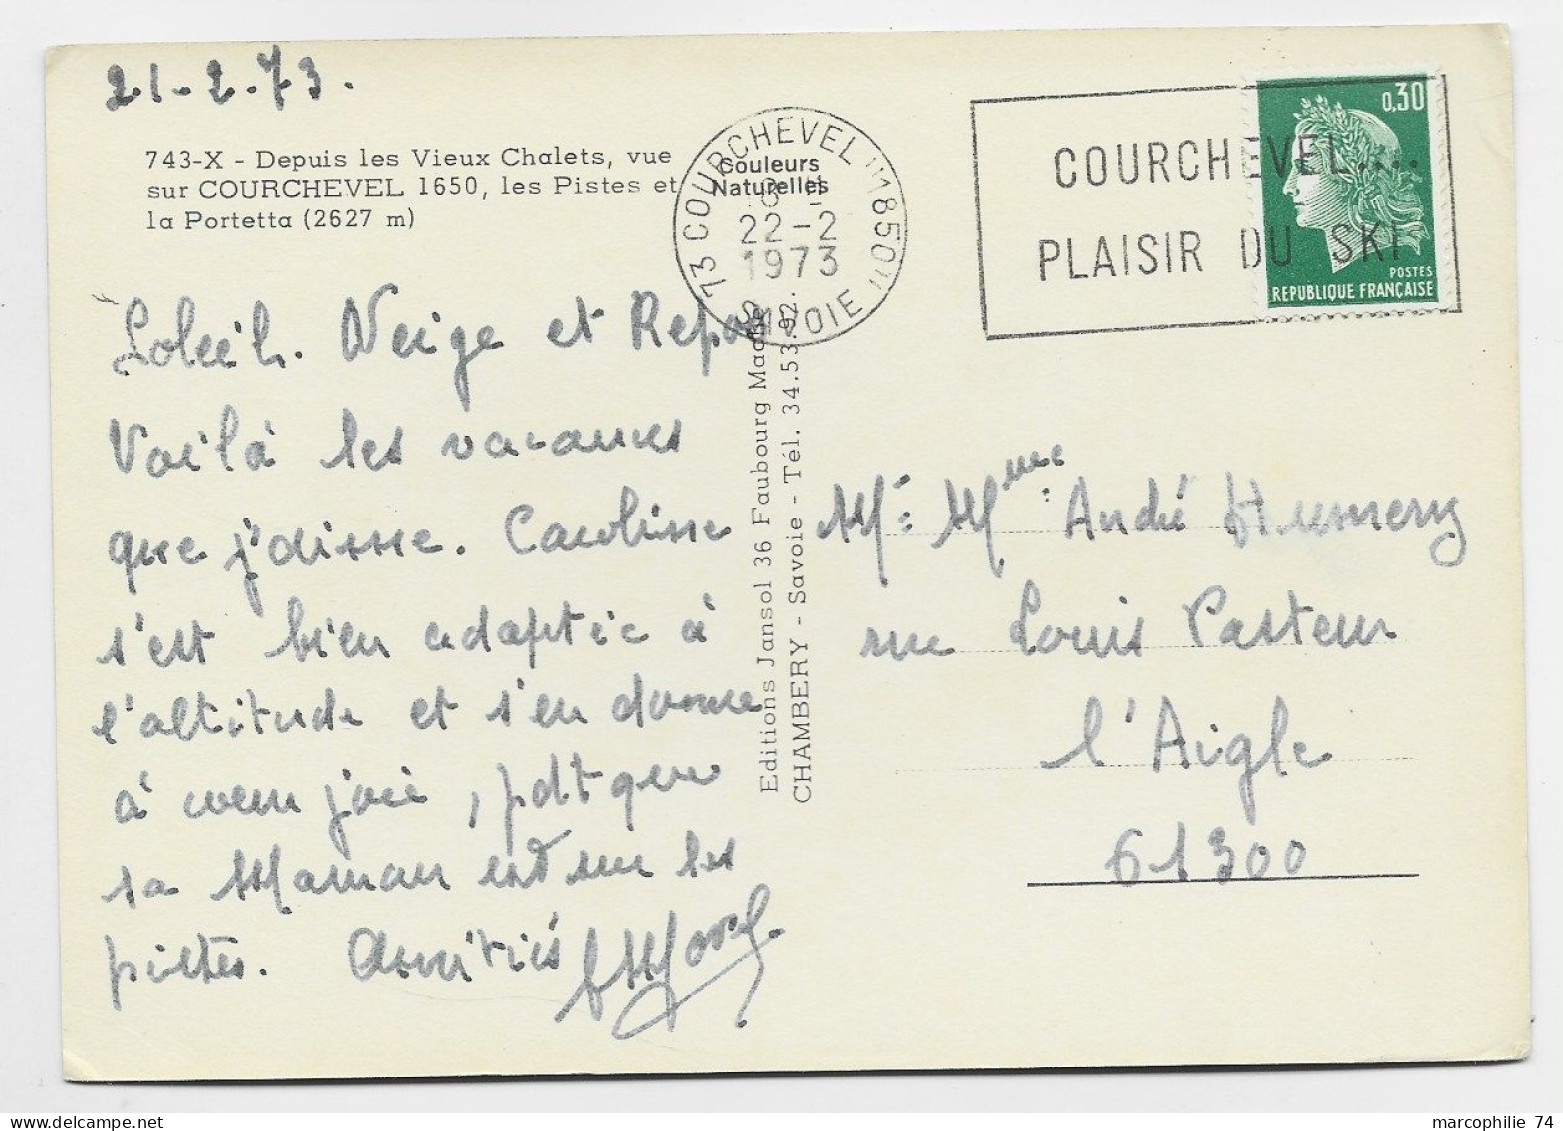 21-2-73.
743-X - Depuis les Vieux Chalets, vue
sur COURCHEVEL 1650, les Pistes et
la Portetta (2627 m)
Couleurs
Naturelles
73 COURCHEVEL "1850"
22-2
1973
SAVOIE
COURCHEVEL....
PLAISIR DU SKI
0,30
POSTES
REPUBLIQUE FRANÇAISE
Soleil. Neige et Repos
Voilà les vacances
que j'aime.
s'est bien adaptée à
l'altitude et s'en donne
à coeur joie, pdt que
sa Maman est sur les
pistes. Amitiés
Editions Jansol 36 Faubourg
CHAMBERY - Savoie - Tél. 34.53.92.
Mr. Mme André
rue Louis Pasteur
l'Aigle
61300
marcophilie 74